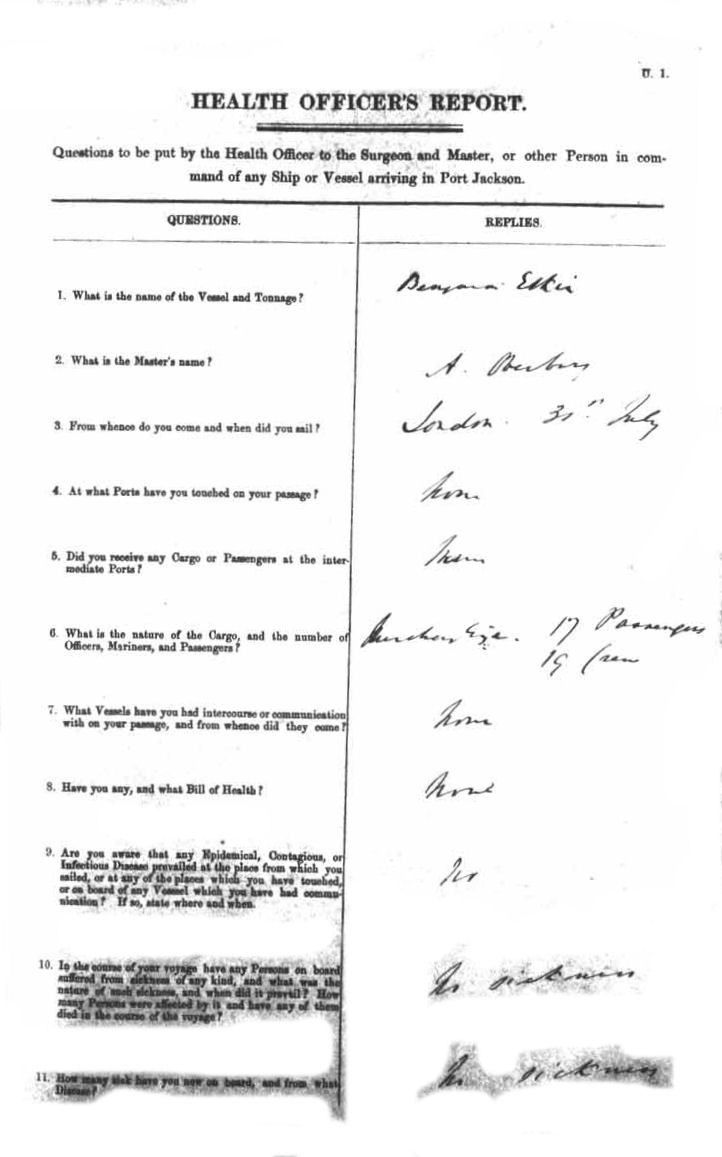 U. 1.
HEALTH OFFICER'S REPORT.
Questions to be put by the Health Officer to the Surgeon and Master, or other Person in com-
mand of any Ship or Vessel arriving in Port Jackson.
QUESTIONS.
REPLIES.
1. What is the name of the Vessel and Tonnage?
Elkin
2. What is the Master's name?
A.
3. From whence do you come and when did you sail?
London. 31st July
4. At what Ports have you touched on your passage?
None
5. Did you receive any Cargo or Passengers at the inter-
mediate Ports?
None
6. What is the nature of the Cargo, and the number of
Officers, Mariners, and Passengers?
17 Passengers
19 Crew
7. What Vessels have you had intercourse or communication
with on your passage, and from whence did they come?
None
8. Have you any, and what Bill of Health?
None
9. Are you aware that any Epidemical, Contagious, or
Infectious Disease prevailed at the place from which you
sailed, or at any of the places which you have touched,
or on board of any Vessel which you have had commu-
nication? If so, state where and when.
No
10. In the course of your voyage have any Persons on board
suffered from sickness of any kind, and what was the
nature of such sickness, and when did it prevail? How
many Persons were affected by it and have any of them
died in the course of the voyage?
No sickness
11. How many sick have you now on board, and from what
Disease?
No sickness